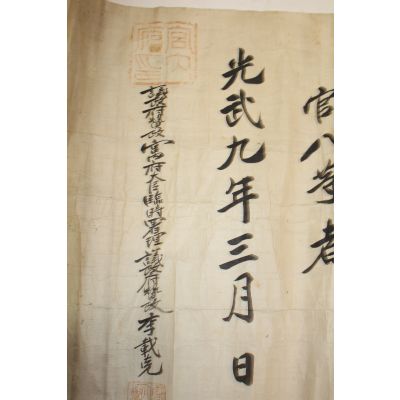 官八等者
光武九年三月 日
議政府贊政宮內府大臣臨時署理議政府贊政李載克